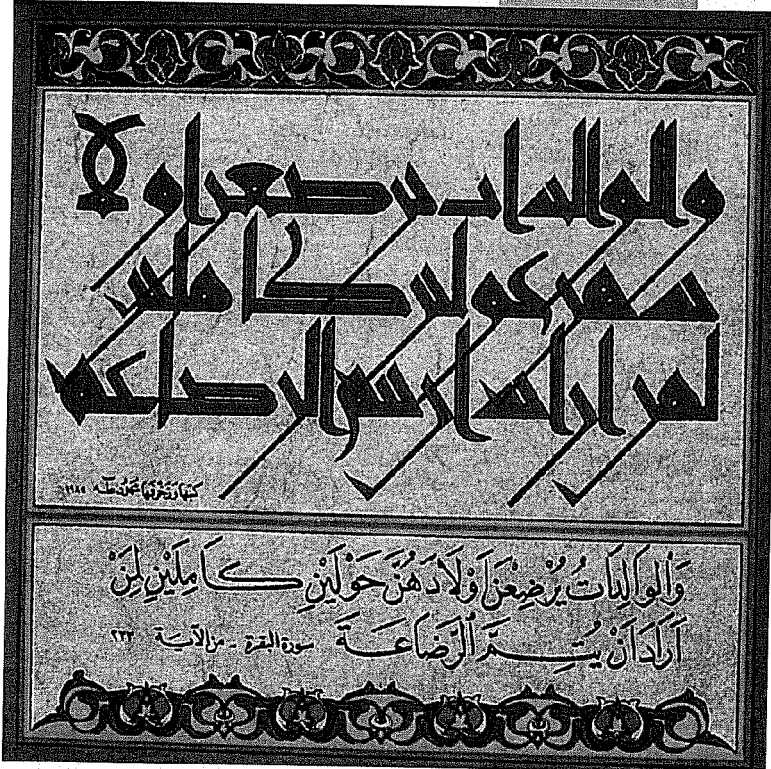 والوالدات يرضعن أولا
دهن حولين كاملين
لمن أراد أن يتم الرضاعة
كتبها وزخرفها محمود طه ١٩٨٥
وَالْوَالِدَاتُ يُرْضِعْنَ أَوْلَادَهُنَّ حَوْلَيْنِ كَامِلَيْنِ لِمَنْ
أَرَادَ أَنْ يُتِمَّ الرَّضَاعَةَ سورة البقرة - من الآية ٢٣٣